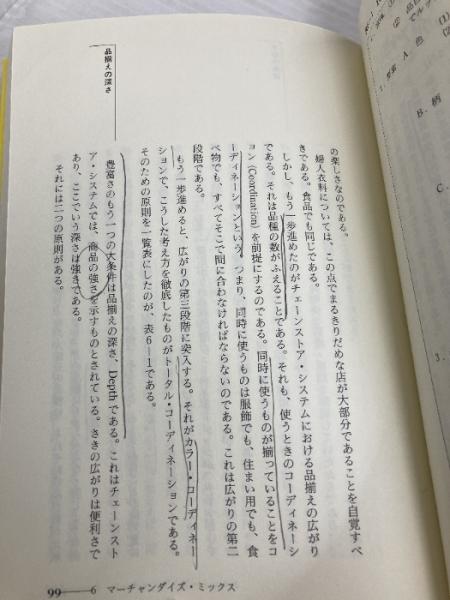 の楽しさなのである。
婦人衣料については、この点でまるきりだめな店が大部分であることを自覚すべ
きである。食品でも同じである。
しかし、もう一歩進めたのがチェーンストア・システムにおける品揃えの広がり
である。それは品種の数がふえることである。それも、使うときのコーディネーシ
ョン(Coordination)を前提にするのである。同時に使うものが揃っていることをコ
ーディネーションという。つまり、同時に使うものは服飾でも、住まい用でも、食
べ物でも、すべてそこで間に合わなければならないのである。これは広がりの第二
段階である。
もう一歩進めると、広がりの第三段階に突入する。それがカラー・コーディネー
ションで、こうした考え方を徹底したものがトータル・コーディネーションである。
そのための原則を一覧表にしたのが、表6―1である。
品揃えの深さ
豊富さのもう一つの大条件は品揃えの深さ、Depthである。これはチェーンスト
ア・システムでは、商品の強さを示すものとされている。さきの広がりは便利さで
あり、ここでいう深さは強さである。
それには二つの原則がある。
99――6 マーチャンダイズ・ミックス
A 色
(1)
B. 柄
C.
3.